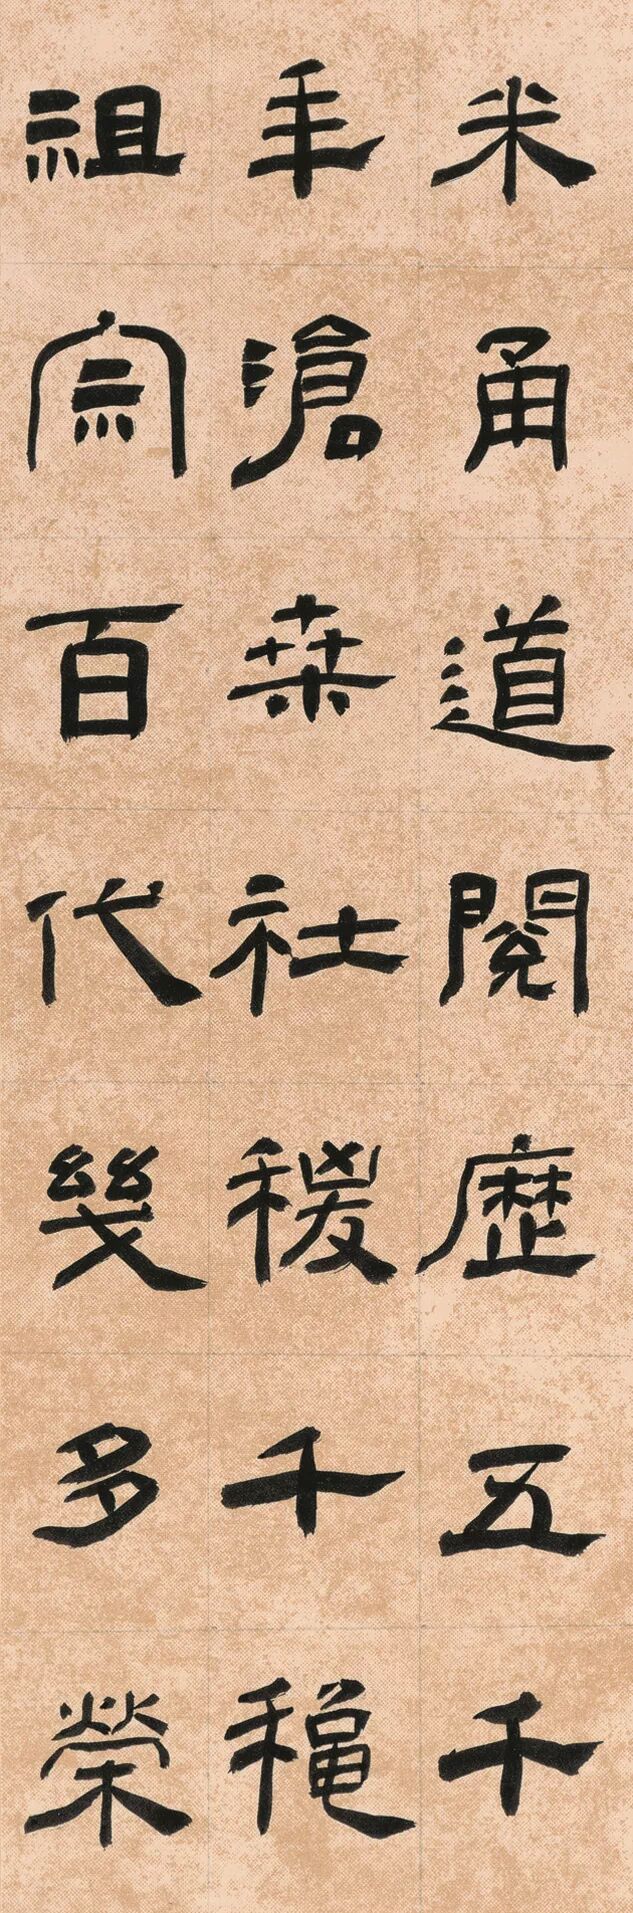 米甬道閱歷五千
年滄桒社稷千穐
祖宗百代幾多榮